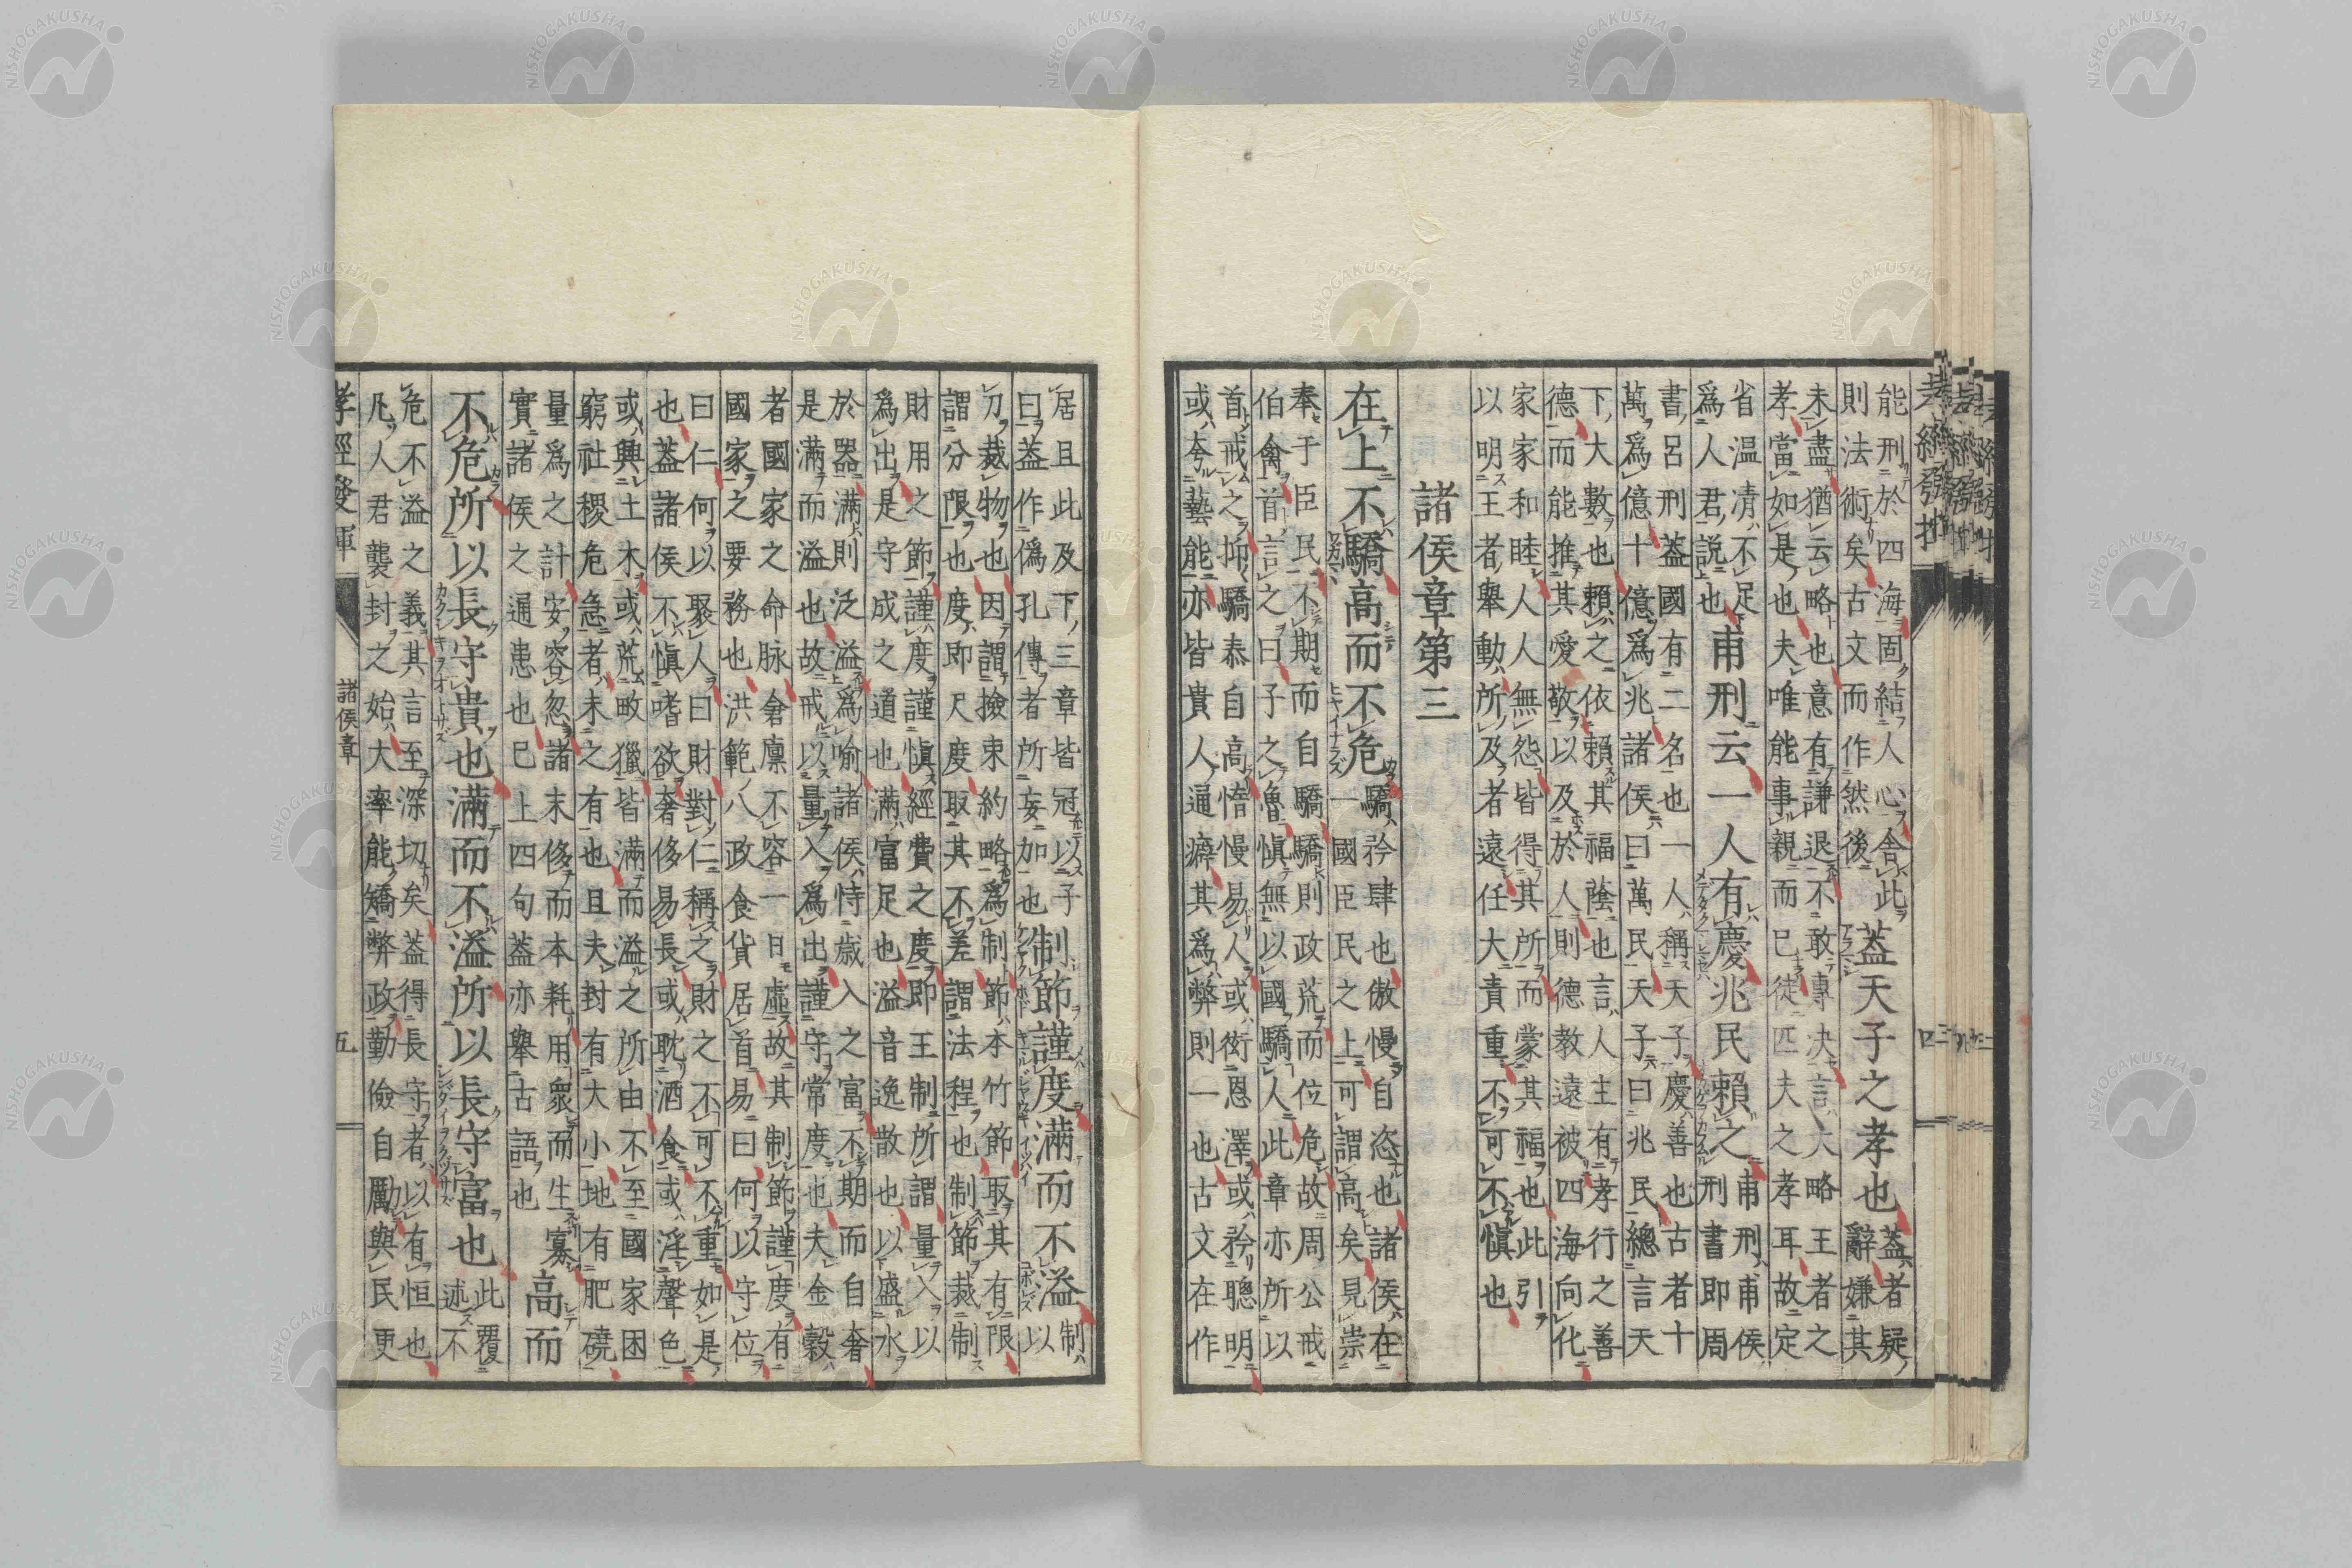 能刑於四海固結人心舎此
則法術矣古文而作然後
蓋天子之孝也
蓋者疑
辭嫌其
未盡猶云略也意有謙退不敢專决言大略王者之
孝當如是也夫唯能事親而已徒匹夫之孝耳故定
省温凊不足
爲人君説也
甫刑云一人有慶兆民賴之
甫刑甫侯
刑書即周
書呂刑蓋國有二名也一人稱天子慶善也古者十
萬爲億十億爲兆諸侯曰萬民天子曰兆民總言天
下大數也賴之依賴其福蔭也言人主有孝行之善
德而能推其愛敬以及於人則德教遠被四海向化
家家和睦人人無怨皆得其所而蒙其福也此引
以明王者舉動所及者遠任大責重不可不愼也
諸侯章第三
在上不驕高而不危
驕矜肆也傲慢自恣也諸侯在
一國臣民之上可謂高矣見崇
奉于臣民不期而自驕驕則政荒而位危故周公戒
伯禽首言之曰子之魯愼無以國驕人此章亦所以
首戒之抑驕泰自高惰慢易人或衒恩澤或矜聰明
或夸藝能亦皆貴人通癖其爲弊則一也古文在作
居且此及下三章皆冠以子
曰蓋作僞孔傳者所妄加也
制節謹度滿而不溢
制
以
刀裁物也因謂撿束約略爲制節本竹節取其有限
謂分限也度即尺度取其不差謂法程也制節裁制
財用之節謹度謹愼經費之度即王制所謂量入以
爲出是守成之道也滿富足也溢音逸散也以盛水
於器滿則泛溢爲喻諸侯恃歳入之富不期而自奢
是滿而溢也故戒以量入爲出謹守常度也夫金穀
者國家之命脉倉廩不容一日虚故其制節謹度有
國家之要務也洪範八政食貨居首易曰何以守位
曰仁何以聚人曰財財對仁稱之財之不可不重如是
也蓋諸侯不愼嗜欲奢侈易長或耽酒食或淫聲色
或興土木或荒畋獵皆滿而溢之所由不至國家困
窮社稷危急者未之有也且夫封有大小地有肥磽
量爲之計安容忽諸末修而本耗用衆而生寡
實諸侯之通患也已上四句蓋亦舉古語也
高而
不危所以長守貴也滿而不溢所以長守富也
此覆
述不
危不溢之義其言至深切矣蓋得長守者以有恒也
凡人君襲封之始大率能矯弊政勤儉自勵與民更
孝經發揮
諸侯章
五
NISHOGAKUSHA